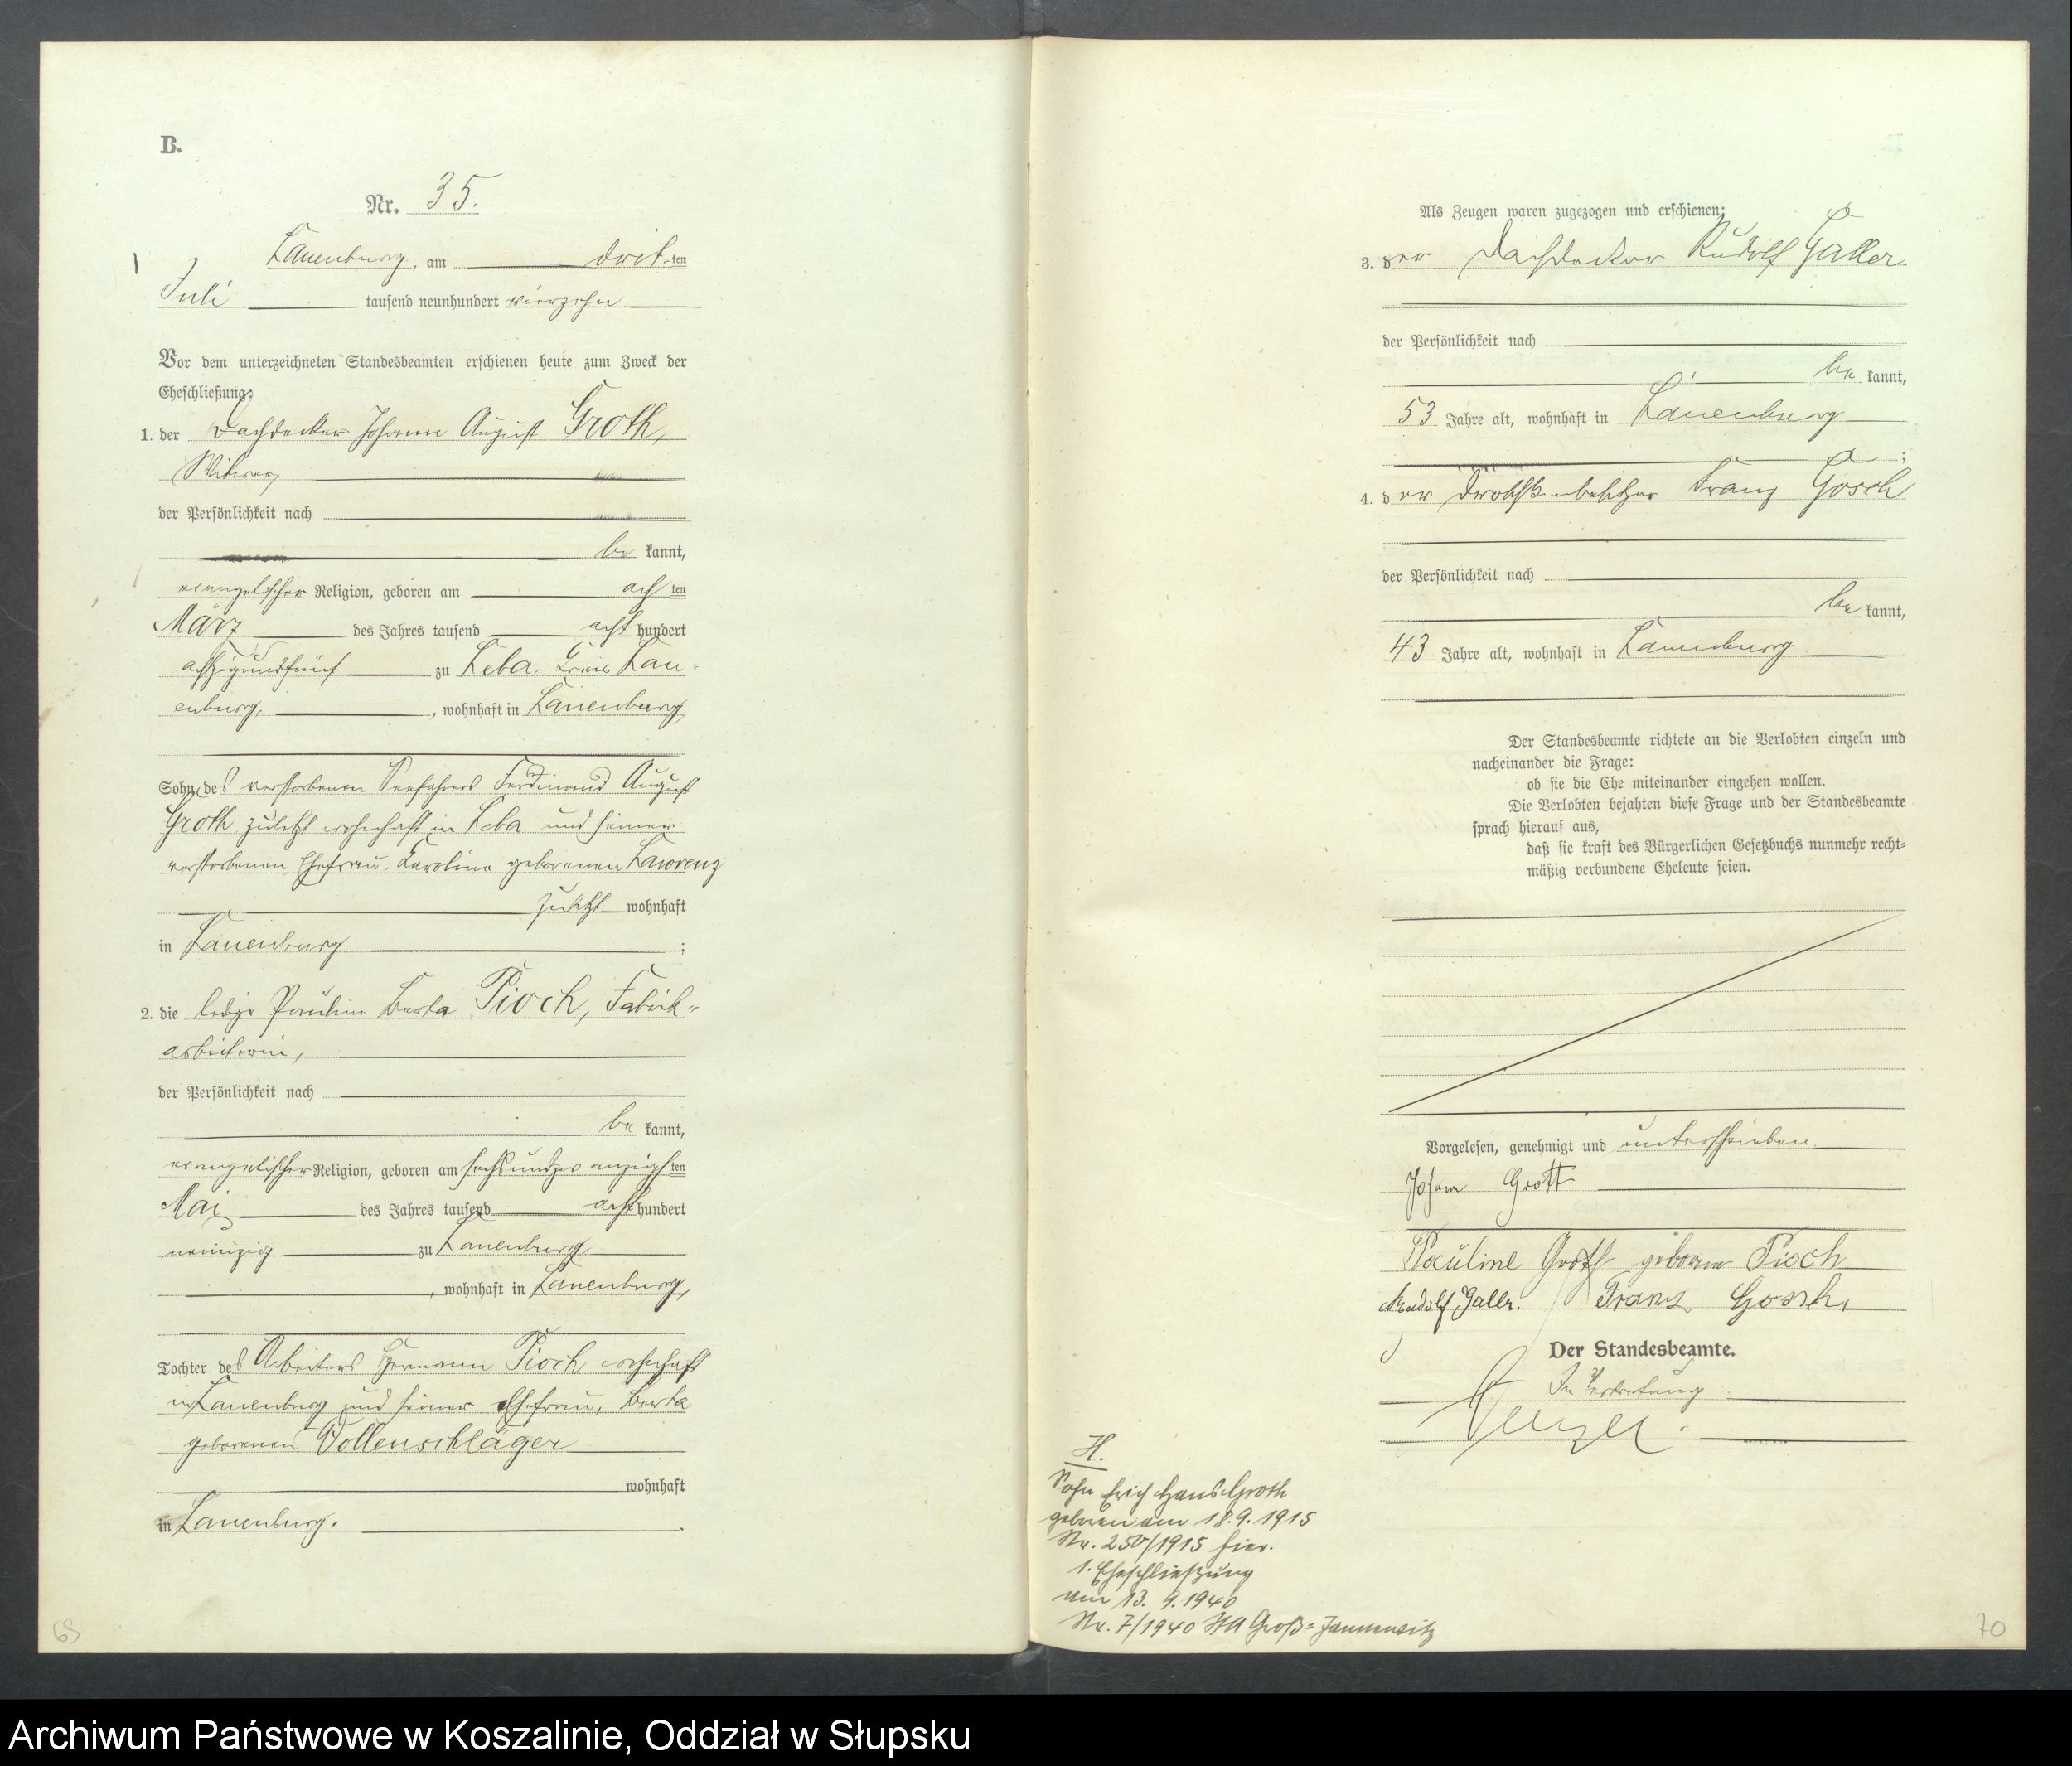 B.
Nr. 35.
Lauenburg, am drit ten
Juli tausend neunhundert vierzehn
Vor dem unterzeichneten Standesbeamten erschienen heute zum Zweck der
Eheschließung:
1. der Dachdecker Johann August Groth,
Witwer,
der Persönlichkeit nach
be kannt,
evangelischer Religion, geboren am ach ten
März des Jahres tausend acht hundert
achtzigundfünf zu Leba, Kreis Lau-
enburg, , wohnhaft in Lauenburg,
Sohn des verstorbenen Seefahrers Ferdinand August
Groth zuletzt wohnhaft in Leba und seiner
verstorbenen Ehefrau, Karoline geborenen Lawrenz
zuletzt wohnhaft
in Lauenburg ;
2. die ledige Pauline Berta Pioch, Fabrik-
arbeiterin,
der Persönlichkeit nach
be kannt,
evangelischer Religion, geboren am sechsundzwanzigs ten
Mai des Jahres tausend acht hundert
neunzig zu Lauenburg
, wohnhaft in Lauenburg,
Tochter des Arbeiters Hermann Pioch wohnhaft
in Lauenburg und seiner Ehefrau, Berta
geborenen Vollenschläger
wohnhaft
in Lauenburg. .
69
Als Zeugen waren zugezogen und erschienen:
3. der Dachdecker Rudolf Galler
der Persönlichkeit nach
be kannt,
53 Jahre alt, wohnhaft in Lauenburg
;
4. der Droschkenbesitzer Franz Gosch
der Persönlichkeit nach
be kannt,
43 Jahre alt, wohnhaft in Lauenburg.
Der Standesbeamte richtete an die Verlobten einzeln und
nacheinander die Frage:
ob sie die Ehe miteinander eingehen wollen.
Die Verlobten bejahten diese Frage und der Standesbeamte
sprach hierauf aus,
daß sie kraft des Bürgerlichen Gesetzbuchs nunmehr recht-
mäßig verbundene Eheleute seien.
Vorgelesen, genehmigt und unterschrieben.
Johann Grott
Pauline Groth geborene Pioch
Rudolf Galler. Franz Gosch,
Der Standesbeamte.
In Vertretung
H.
Sohn Erich Hans Groth
geboren am 18.9.1915
Nr. 250/1915 hier.
1. Eheschließung
am 13. 9. 1940
Nr. 7/1940 StA Groß-Jannewitz
70
Archiwum Państwowe w Koszalinie, Oddział w Słupsku